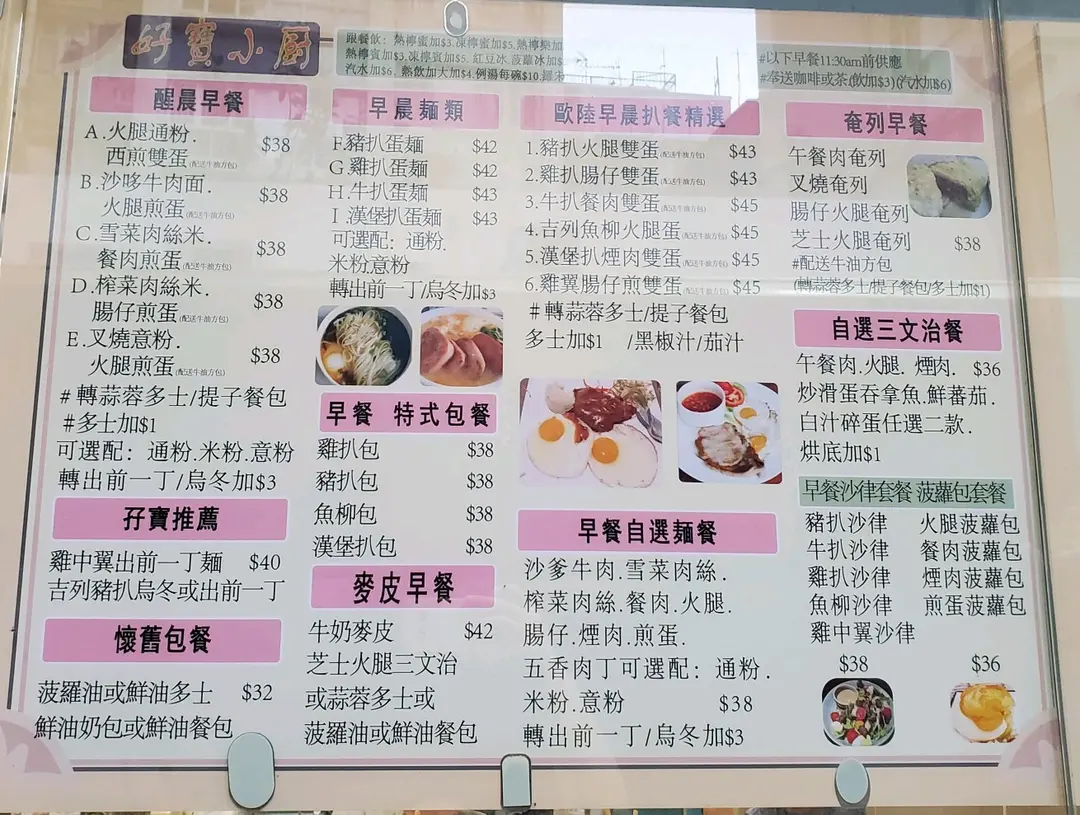 好寶小厨
跟餐飲：熱檸蜜加$3.凍檸蜜加$5.熱檸樂加
熱檸賓加$3.凍檸賓加$5. 紅豆冰.菠蘿冰加$
汽水加$6. 熱飲加大加$4.例湯每碗$10.
#以下早餐11:30am前供應
#奉送咖啡或茶(飲加$3)(汽水加$6)
醒晨早餐
A.火腿通粉. $38
西煎雙蛋(配送牛油方包)
B.沙嗲牛肉面. $38
火腿煎蛋(配送牛油方包)
C.雪菜肉絲米. $38
餐肉煎蛋(配送牛油方包)
D.榨菜肉絲米. $38
腸仔煎蛋(配送牛油方包)
E.叉燒意粉. $38
火腿煎蛋(配送牛油方包)
#轉蒜蓉多士/提子餐包
#多士加$1
可選配：通粉.米粉.意粉
轉出前一丁/烏冬加$3
孖寶推薦
雞中翼出前一丁麵 $40
吉列豬扒烏冬或出前一丁
懷舊包餐
菠蘿油或鮮油多士 $32
鮮油奶包或鮮油餐包
早晨麵類
F.豬扒蛋麵 $42
G.雞扒蛋麵 $42
H.牛扒蛋麵 $43
I.漢堡扒蛋麵 $43
可選配：通粉.
米粉意粉
轉出前一丁/烏冬加$3
早餐 特式包餐
雞扒包 $38
豬扒包 $38
魚柳包 $38
漢堡扒包 $38
麥皮早餐
牛奶麥皮 $42
芝士火腿三文治
或蒜蓉多士或
菠蘿油或鮮油餐包
歐陸早晨扒餐精選
1.豬扒火腿雙蛋(配送牛油方包) $43
2.雞扒腸仔雙蛋(配送牛油方包) $43
3.牛扒餐肉雙蛋(配送牛油方包) $45
4.吉列魚柳火腿蛋(配送牛油方包) $45
5.漢堡扒煙肉雙蛋(配送牛油方包) $45
6.雞翼腸仔煎雙蛋(配送牛油方包) $45
#轉蒜蓉多士/提子餐包
多士加$1 /黑椒汁/茄汁
早餐自選麵餐
沙爹牛肉.雪菜肉絲.
榨菜肉絲.餐肉.火腿.
腸仔.煙肉.煎蛋.
五香肉丁可選配：通粉.
米粉.意粉 $38
轉出前一丁/烏冬加$3
奄列早餐
午餐肉奄列
叉燒奄列
腸仔火腿奄列
芝士火腿奄列 $38
#配送牛油方包
(轉蒜蓉多士/提子餐包/多士加$1)
自選三文治餐
午餐肉.火腿.煙肉. $36
炒滑蛋吞拿魚.鮮蕃茄.
白汁碎蛋任選二款.
烘底加$1
早餐沙律套餐 菠蘿包套餐
豬扒沙律 火腿菠蘿包
牛扒沙律 餐肉菠蘿包
雞扒沙律 煙肉菠蘿包
魚柳沙律 煎蛋菠蘿包
雞中翼沙律
$38 $36